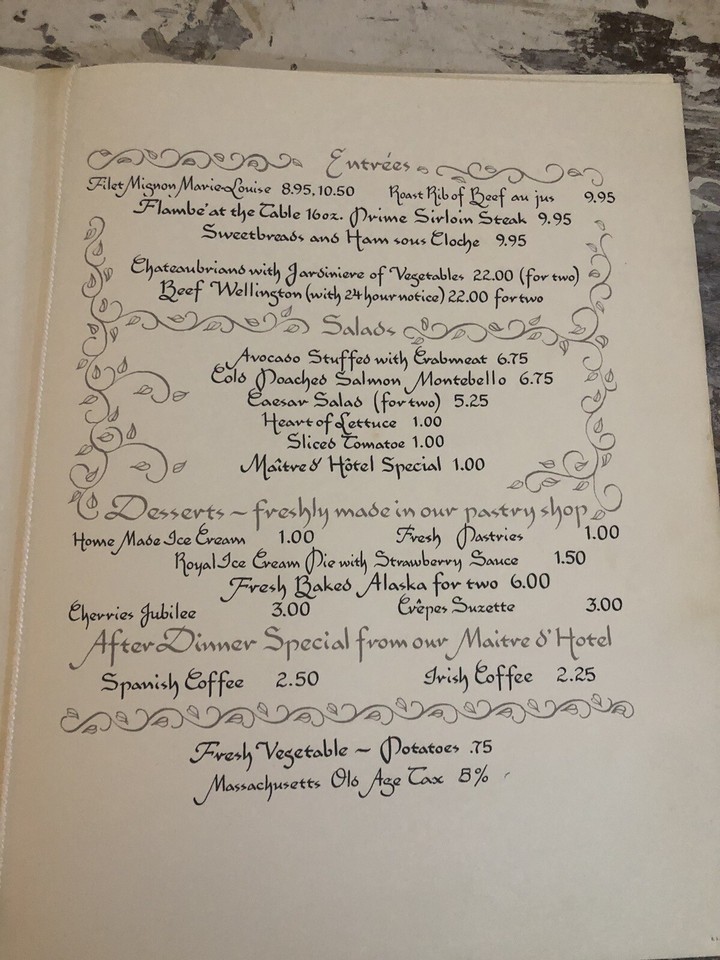 Entrées
Filet Mignon Marie-Louise 8.95, 10.50 Roast Rib of Beef au jus 9.95
Flambe' at the Table 16oz. Prime Sirloin Steak 9.95
Sweetbreads and Ham sous Cloche 9.95
Chateaubriand with Jardiniere of Vegetables 22.00 (for two)
Beef Wellington (with 24 hour notice) 22.00 for two
Salads
Avocado Stuffed with Crabmeat 6.75
Cold Poached Salmon Montebello 6.75
Caesar Salad (for two) 5.25
Heart of Lettuce 1.00
Sliced Tomatoe 1.00
Maître d' Hôtel Special 1.00
Desserts ~ freshly made in our pastry shop
Home Made Ice Cream 1.00 Fresh Pastries 1.00
Royal Ice Cream Pie with Strawberry Sauce 1.50
Fresh Baked Alaska for two 6.00
Cherries Jubilee 3.00 Crêpes Suzette 3.00
After Dinner Special from our Maitre d' Hotel
Spanish Coffee 2.50 Irish Coffee 2.25
Fresh Vegetable ~ Potatoes .75
Massachusetts Old Age Tax 5%